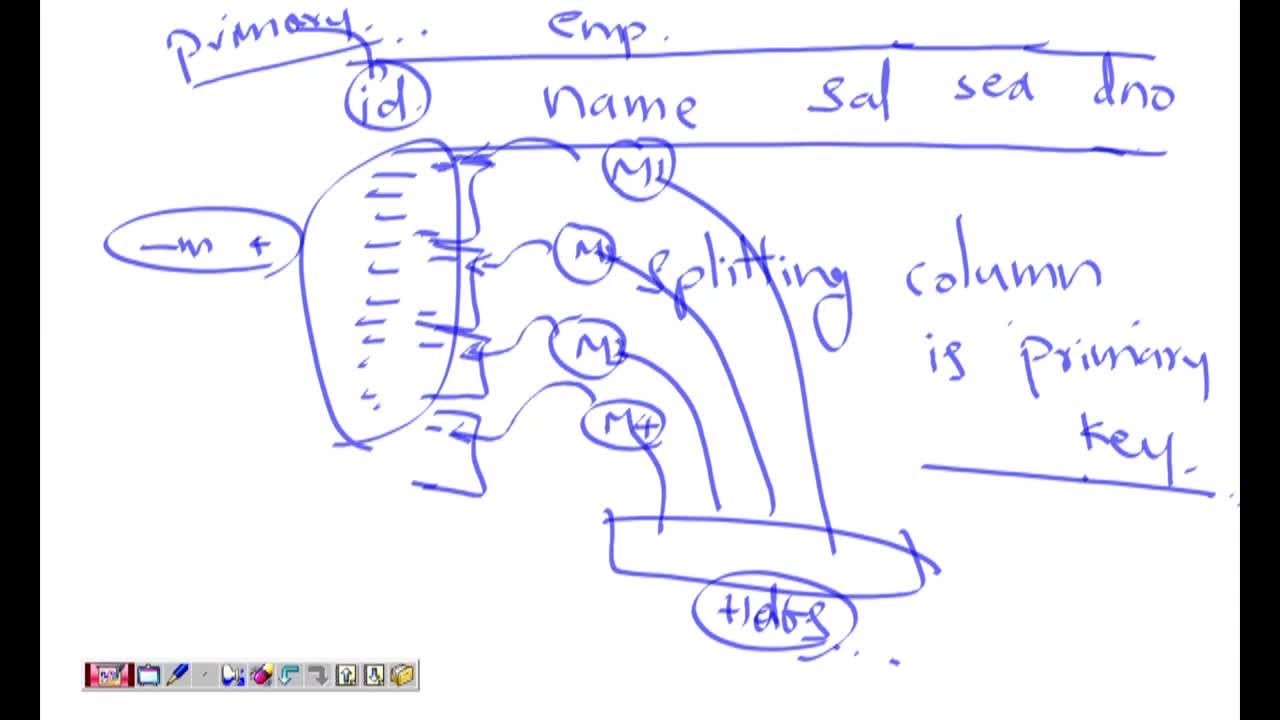 primary... emp.
id. name sal sex dno
M1
M2
splitting column
is primary
M3
key.
M4
Hdfs